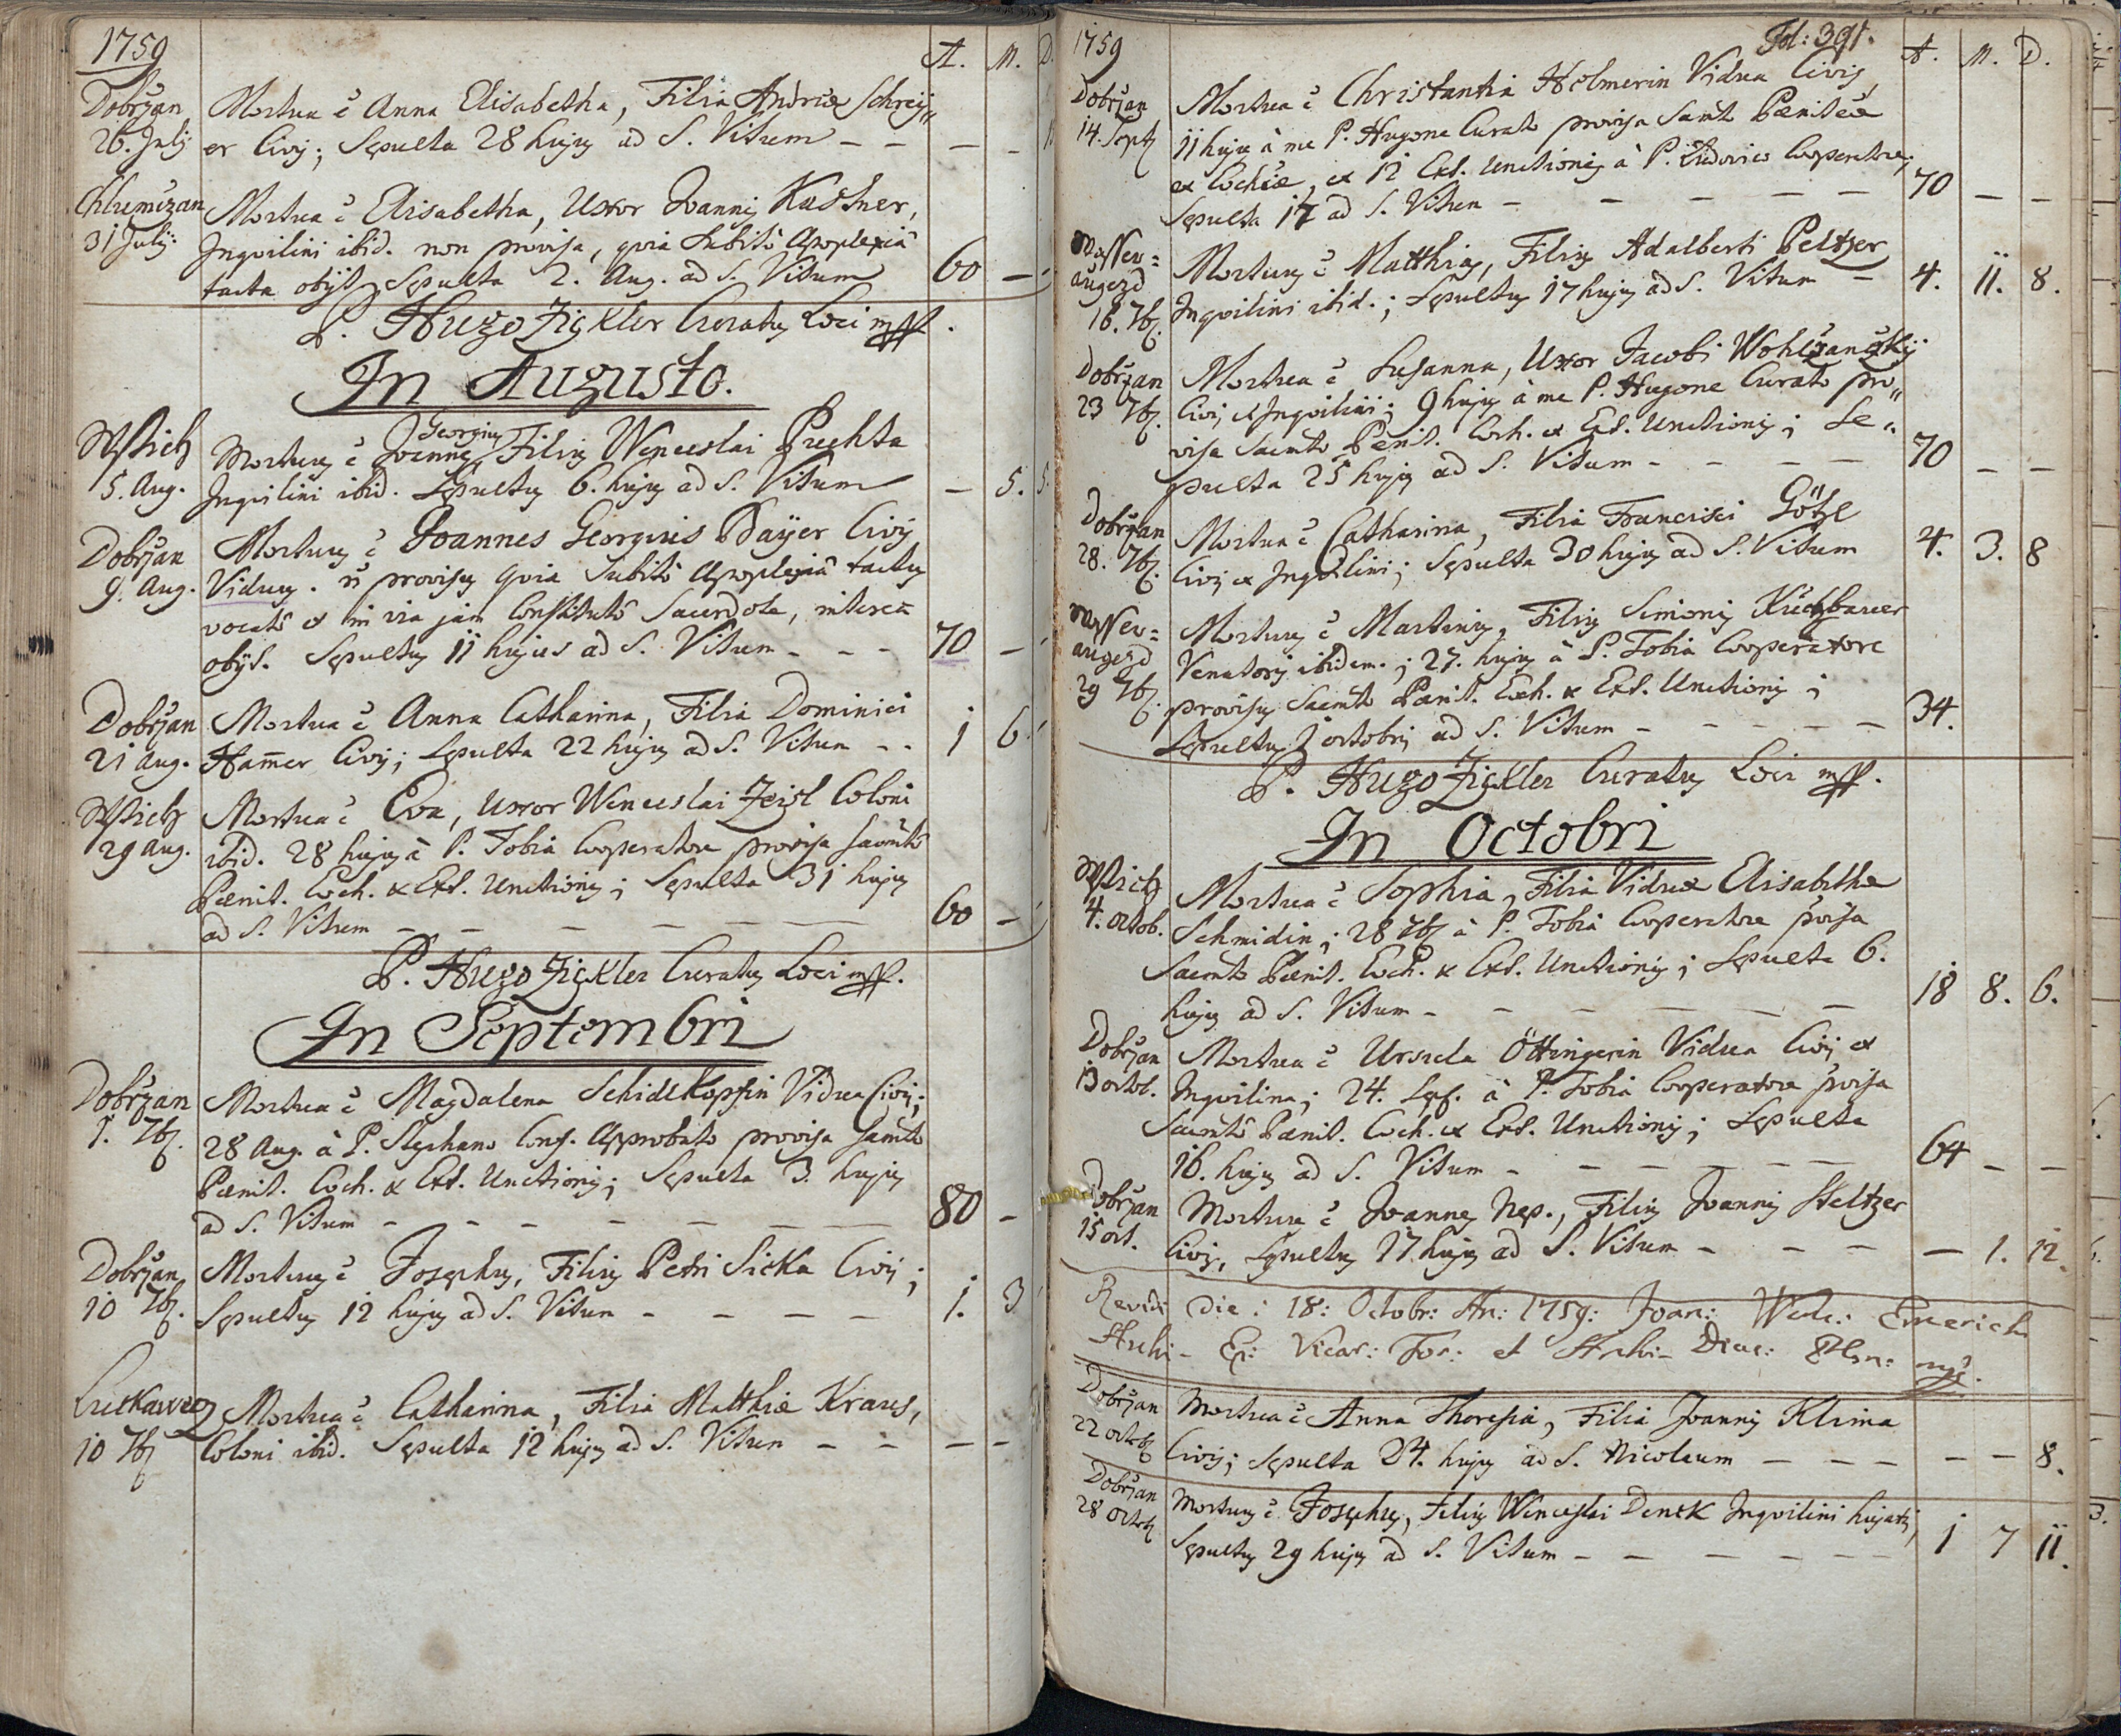 1759
A. M. D.
Dobržan Mortua ē Anna Elisabetha, Filia Andreæ Schreÿ„
26. Julÿ er Civis; Sepulta 28 hujus ad S. Vitum – – – –
Chlumczan Mortua ē Elisabetha, Uxor Joannis Kastner,
31 Julÿ: Inqvilini ibid. non provisa, qvia subitô Apoplexiâ
tacta obÿt, Sepulta 2. Aug. ad S. Vitum 60 –
P. Hugo Zigkler Curatus Loci mpp.
In Augusto.
Georgius
Wstich Mortuus ē Joannes, Filius Wenceslai Puchta
5. Aug. Inqvilini ibid. Sepultus 6. hujus ad S. Vitum – 5. 5.
Dobržan Mortuus ē Joannes Georgius Baÿer Civis
9. Aug. Viduus. ñ provisus qvia subitô Apoplexiâ tactus
vocatô et in via jam constitutô Sacerdote, interea
obÿt. Sepultus 11 hujus ad S. Vitum – – – 70 –
Dobržan Mortua ē Anna Catharina, Filia Dominici
21 Aug. Ham̄er Civis; Sepulta 22 hujus ad S. Vitum – – 1 6
Wstich Mortua ē Eva, Uxor Wenceslai Zeisl Coloni
29 Aug. ibid. 28 hujus à P. Tobia Cooperatore provisa Sacmtô
Pænit. Euch. & Ext. Unctionis; Sepulta 31 hujus
ad S. Vitum – – – – – 60 –
P. Hugo Zigkler Curatus Loci mpp.
In Septembri
Dobržan Mortua ē Magdalena Schidlkopfin Vidua Civis;
1. 7bris. 28 Aug. à P. Stephano Conf. Approbato provisa Sacmtô
Pænit. Euch. & Ext. Unctionis; Sepulta 3. hujus
ad S. Vitum – – – – – – 80 –
Dobržan Mortuus ē Josephus, Filius Petri Sicka Civis;
10 7bris. Sepultus 12 hujus ad S. Vitum – – – – 1. 3
Luckawecz Mortua ē Catharina, Filia Matthiæ Kraus,
10 7bris Coloni ibid. Sepulta 12 hujus ad S. Vitum – – – –
1759 Fol: 391. A. M. D.
Dobržan Mortua ē Christantia Holmerin Vidua Civis,
14. Septb 11 hujus à me P. Hugone Curato provisa Samt. Pænitēæ
et Euchiæ, et 12 Ext. Unctionis à P. Ludovico Cooperatore;
Sepulta 17 ad S. Vitum – – – – – 70 – –
Wasser=
augezd Mortuus ē Matthias, Filius Adalberti Peltzer
16. 7bris. Inqvilini ibid.; Sepultus 17 hujus ad S. Vitum – 4. 11. 8.
Dobržan Mortua ē Susanna, Uxor Jacobi Wohlčanczkÿ
23 7bris. Civis et Inqvilini; 9 hujus à me P. Hugone Curato pro„
visa Sacmto Pænit. Euch. et Ext. Unctionis; Se„
pulta 25 hujus ad S. Vitum – – – – 70 – –
Dobržan Mortua ē Catharina, Filia Francisci Götzl
28. 7bris. Civis et Inqvilini; Sepulta 30 hujus ad S. Vitum 4. 3. 8
Wasser=
augezd Mortuus ē Martinus, Filius Simonis Küchbauer
29 7bris. Venatoris ibidem.; 27. hujus à P. Tobia Cooperatore
provisus Sacmto Pænit. Euch. & Ext. Unctionis;
Sepultus 1 octobris ad S. Vitum – – – – – 34.
P. Hugo Zigkler Curatus Loci mpp.
In Octobri
Wstich Mortua ē Sophia, Filia Viduæ Elisabethæ
4. octob. Schmidin; 28 7bris à P. Tobia Cooperatore p̄visa
Sacmto Pænit. Euch. & Ext. Unctionis; Sepulta 6.
hujus ad S. Vitum – – – – – – 18 8. 6.
Dobržan Mortua ē Ursula Öttingerin Vidua Civis et
13 octob. Inqvilina; 24. Sept. à P. Tobia Cooperatore p̄visa
Sacmtô Pænit. Euch. et Ext. Unctionis; Sepulta
16. hujus ad S. Vitum – – – – – – 64 – –
Dobržan Mortuus ē Joannes Nep., Filius Joannis Steltzer
15 oct. Civis, Sepultus 17 hujus ad S. Vitum – – – – 1. 12.
Revidi die: 18: Octobr: An: 1759: Joan: Wenc: Emerich
Archi- Ep: Vicar: For: et Archi- Diac: Plsn: mp.
Dobržan Mortua ē Anna Theresia, Filia Joannis Klima
22 octob Civis; Sepulta 24. hujus ad S. Nicolaum – – – – – 8.
Dobržan Mortuus ē Josephus, Filius Wenceslai Denck Inqvilini hujatis,
28 Octob Sepultus 29 hujus ad S. Vitum – – – – – 1 7 11.